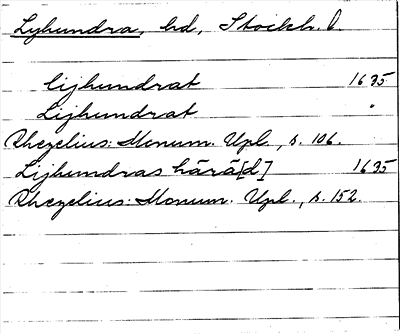 Lyhundra, hd, Stockh. l.
lijhundrat 1635
Lijhundrat "
Rhezelius: Monum. Upl., s. 106.
Lijhundras härä[d] 1635
Rhezelius: Monum. Upl., s. 152.